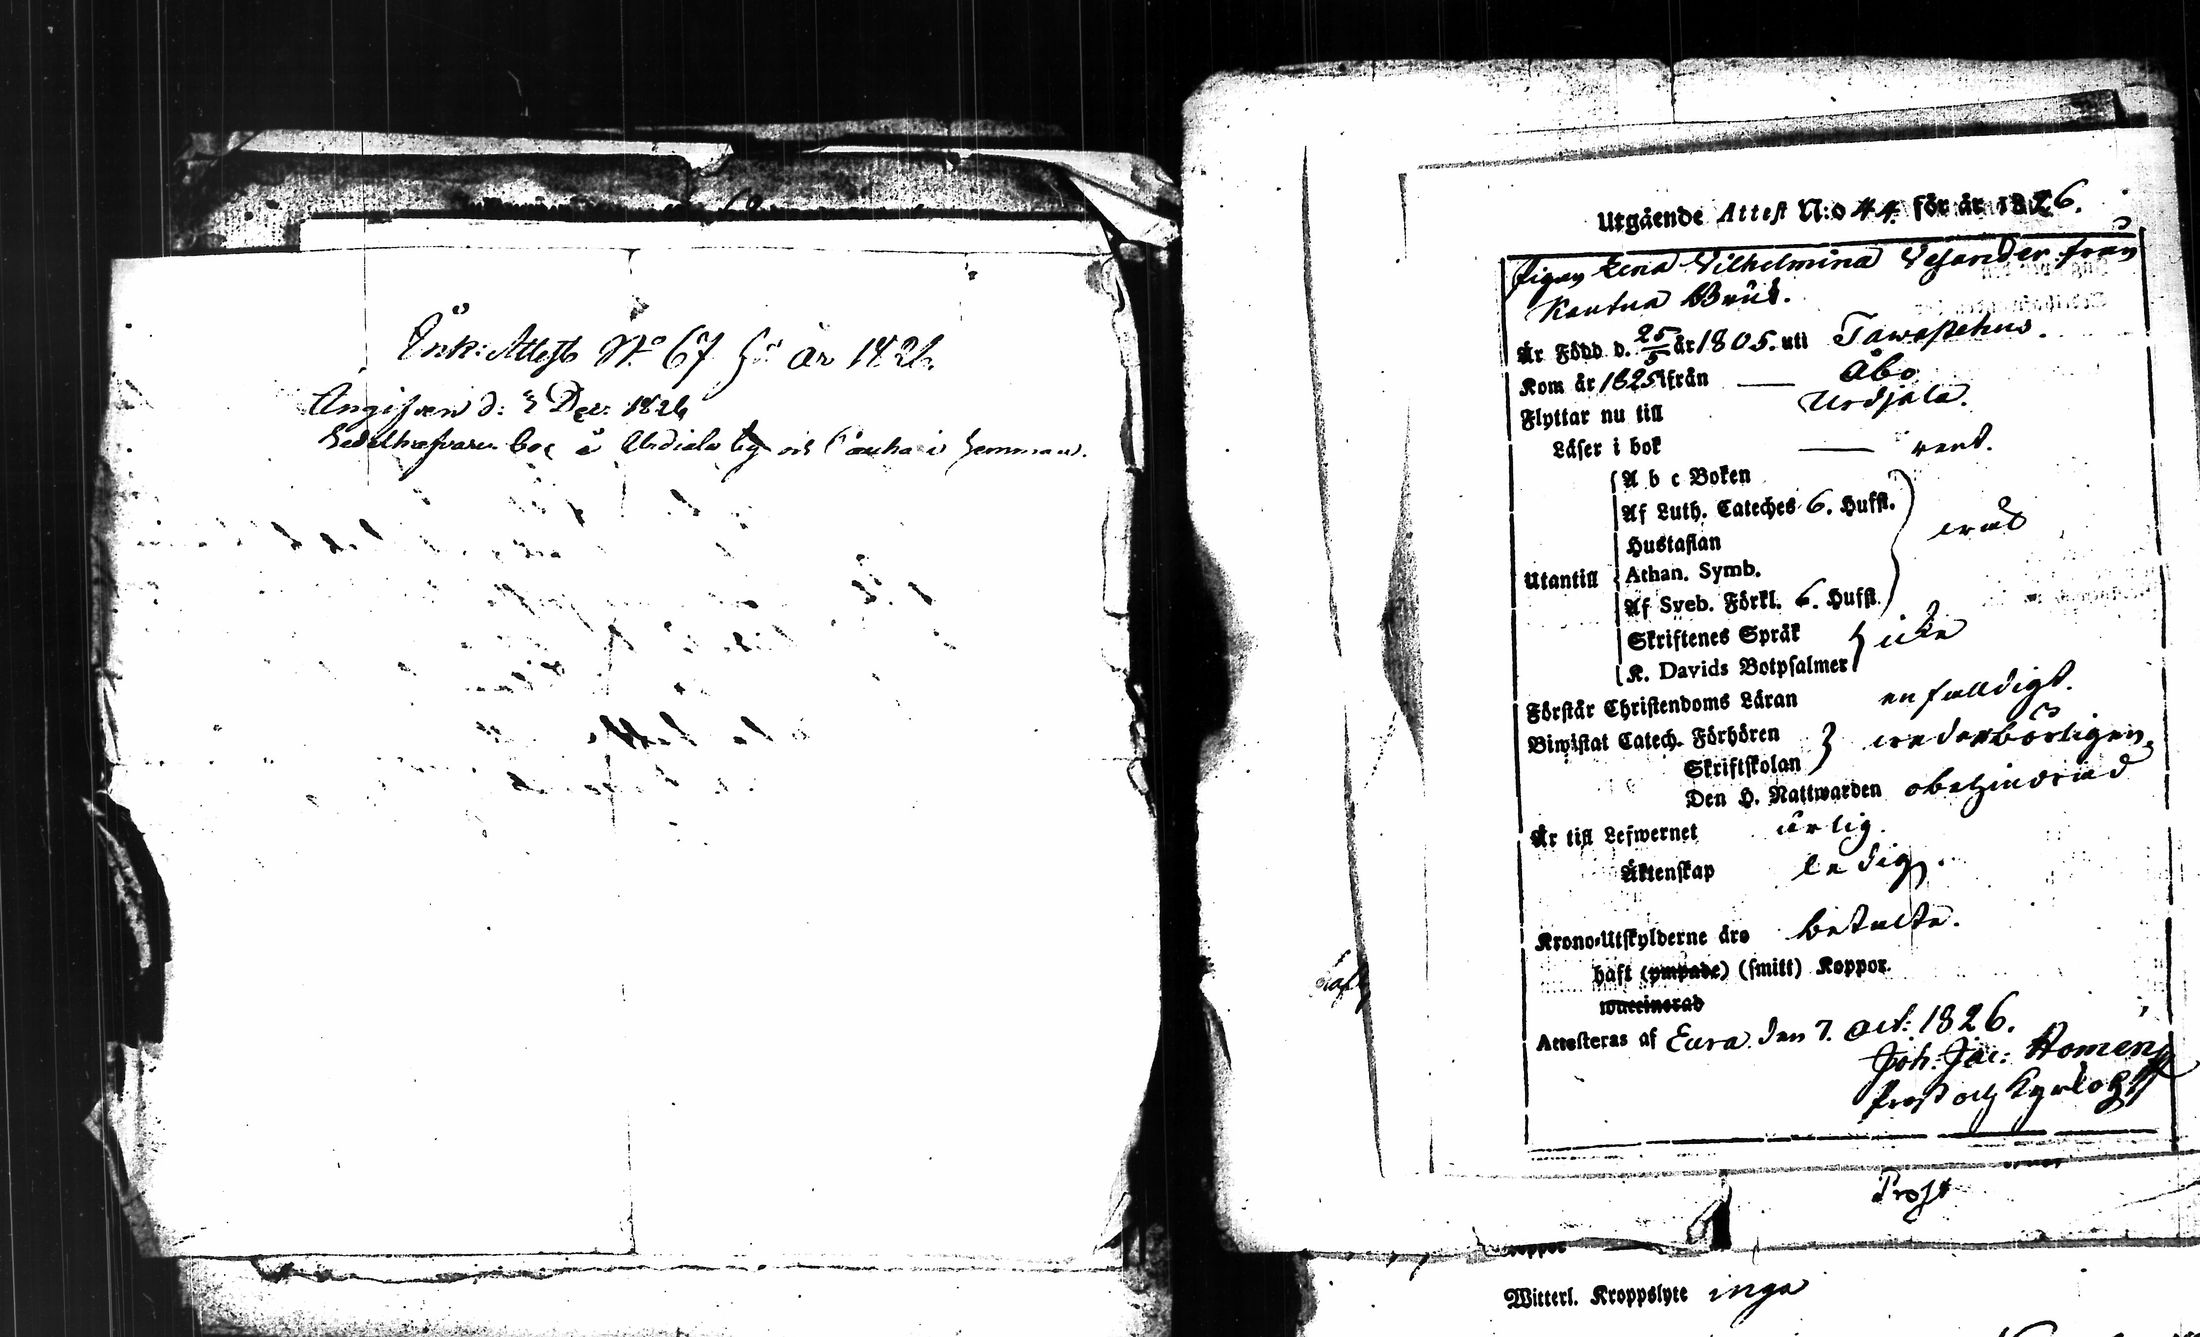 Ank: Attest No 67 för år 1826.
Angifven d: 3 Dec: 1826
boe å Urdiala by och i hemman.
Utgående Attest N:o 44. för år 1826.
Pigan Lena Vilhelmina Vesander från
Kautua Bruk.
Är Född d. 25/5 år 1805. uti Tawastehus.
Kom år 1825 ifrån — Åbo
Flyttar nu till Urdjala.
Läser i bok — rent.
Utantill
A b c Boken
Af Luth. Cateches 6. Hufst.
Hustaflan
Athan. Symb.
Af Sveb. Förkl. 6. Hufst.
Skriftenes Språk
K. Davids Botpsalmer
icke
Förstår Christendoms Läran enfaldigt.
Biwistat Catech. Förhören
Skriftskolan
wederbörligen.
Den H. Nattwarden obehindrad
Är till Lefwernet ärlig.
Äktenskap ledig.
Krono-Utskylderne äro betalte.
haft (ympade) (smitt) Koppor.
waccinerad
Attesteras af Eura den 7. Oct: 1826.
Joh: Jac: Homén
Prost och Kyrkoh
Prost
Witterl. Kroppslyte inga